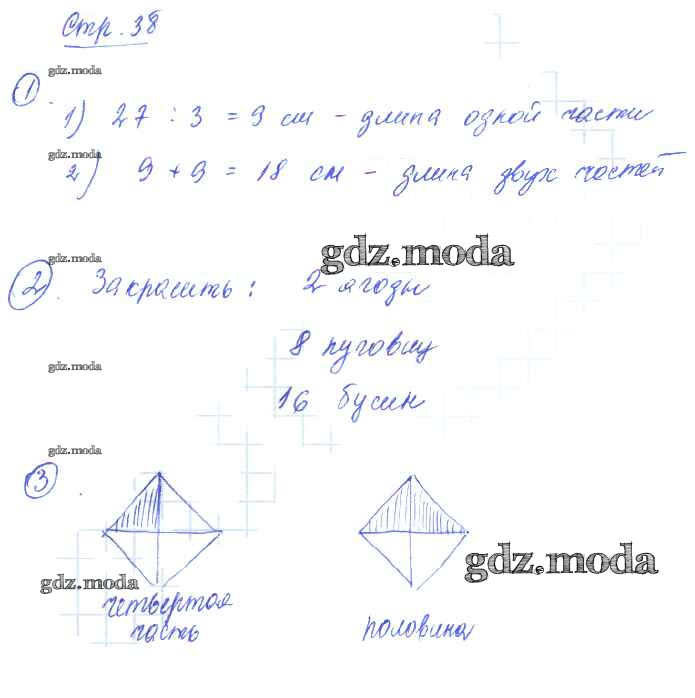 Стр. 38
gdz.moda
1
1) 27 : 3 = 9 см - длина одной части
gdz.moda
2) 9 + 9 = 18 см - длина двух частей
gdz.moda
gdz.moda
2. Закрасить: 2 ягоды
8 пуговиц
gdz.moda
16 бусин
gdz.moda
3
gdz.moda
gdz.moda
четвертая
часть
половина